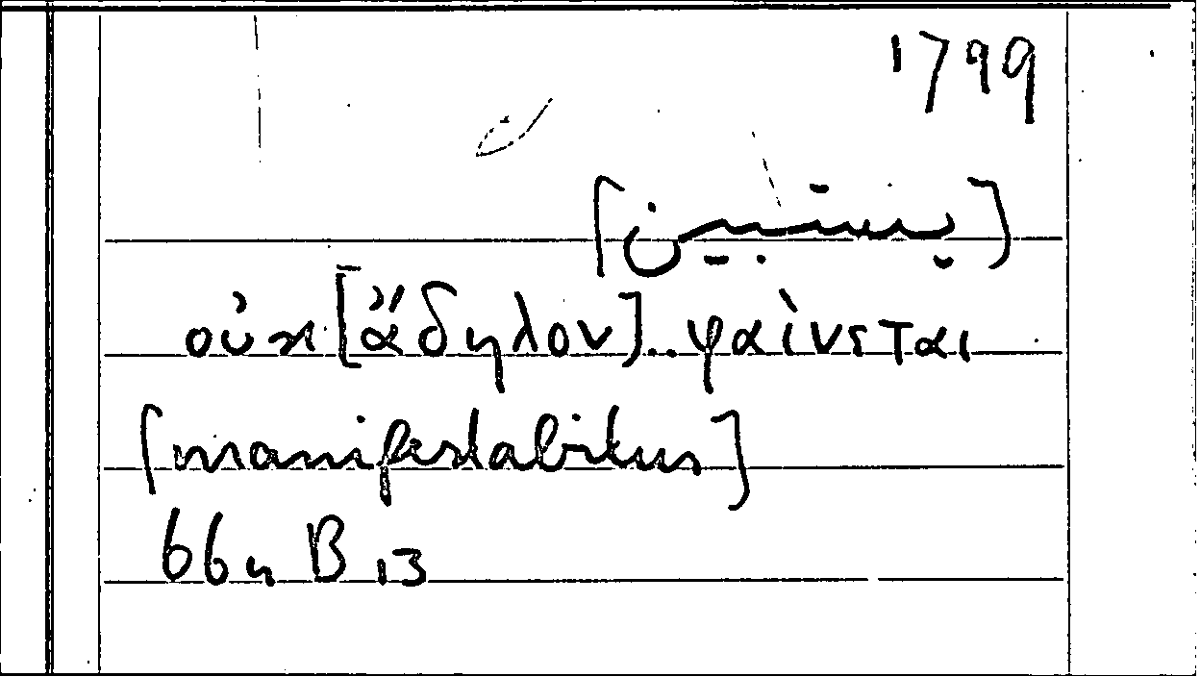 1799
[يستبين]
οὐκ [ἄδηλον].. φαίνεται
[manifestabitur]
66 b 13